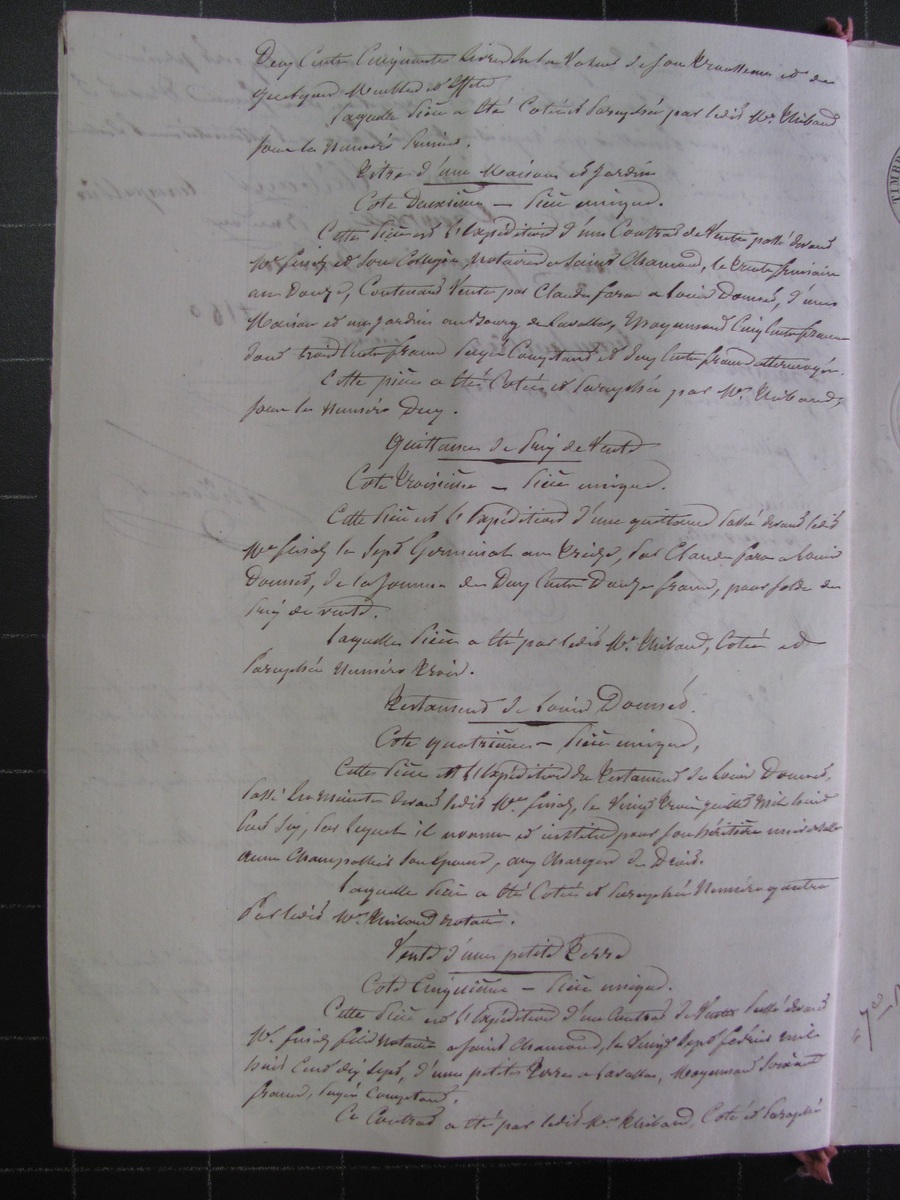 Deux Cents Cinquante Livres en la Valeur de son Trousseau et de
quelques Meubles et Effets
Laquelle Pièce a été Cotée et Paraphée par ledit Me. Thibaud
sous le Numéro Premier.
Titre d'une Maison et Jardin
Cote Deuxième – Pièce unique.
Cette Pièce est l'Expédition d'un Contrat de Vente passé devant
Me. Finaz et son Collègue notaires a Saint Chamond, le trente frimaire
an Douze, Contenant Vente par Claude Faron a Louis Doumed, d'une
Maison et un Jardin au Bourg de Lavallas, Moyennant Cinq Cents francs
dont trois Cents francs Payés Comptant et deux Cents francs attermoyés.
Cette pièce a été Cotée et Paraphée par Me. Thibaud,
sous le Numéro Deux.
Quittance de Prix de Vente
Cote Troisième – Pièce unique.
Cette Pièce est l'Expédition d'une quittance Passée devant ledit
Me Finaz le Sept Germinal an Treize, Par Claude Faron a Louis
Doumed, de la Somme de Deux Cents Douze francs, pour solde du
Prix de vente.
Laquelle Pièce a été par ledit Me. Thibaud, Cotée et
Paraphée Numéro Trois.
Testament de Louis Doumed.
Cote quatrième – Pièce unique,
Cette Pièce est l'Expédition du Testament de Louis Doumed,
Passé en minute devant ledit Me Finaz, le Vingt Trois juillet Mil huit
Cent Six, Par lequel il nomme et institue pour son héritière universelle
anne Champallier Son Epouse, aux Charges de Droit.
Laquelle Pièce a été Cotée et Paraphée Numéro quatre
Par ledit Me. Thibaud notaire.
Vente d'une petite Terre
Cote Cinquième – Pièce unique.
Cette Pièce est l'Expédition d'un Contrat de Vente Passé devant
Me. Finaz fils notaire a Saint Chamond, le Vingt Sept février mil
huit Cent dix Sept, d'une petite Terre a Lavallas, Moyennant Soixante
francs, Payés Comptant.
Ce Contrat a été par ledit Me Thibaud, Coté et Paraphé
TIMBR